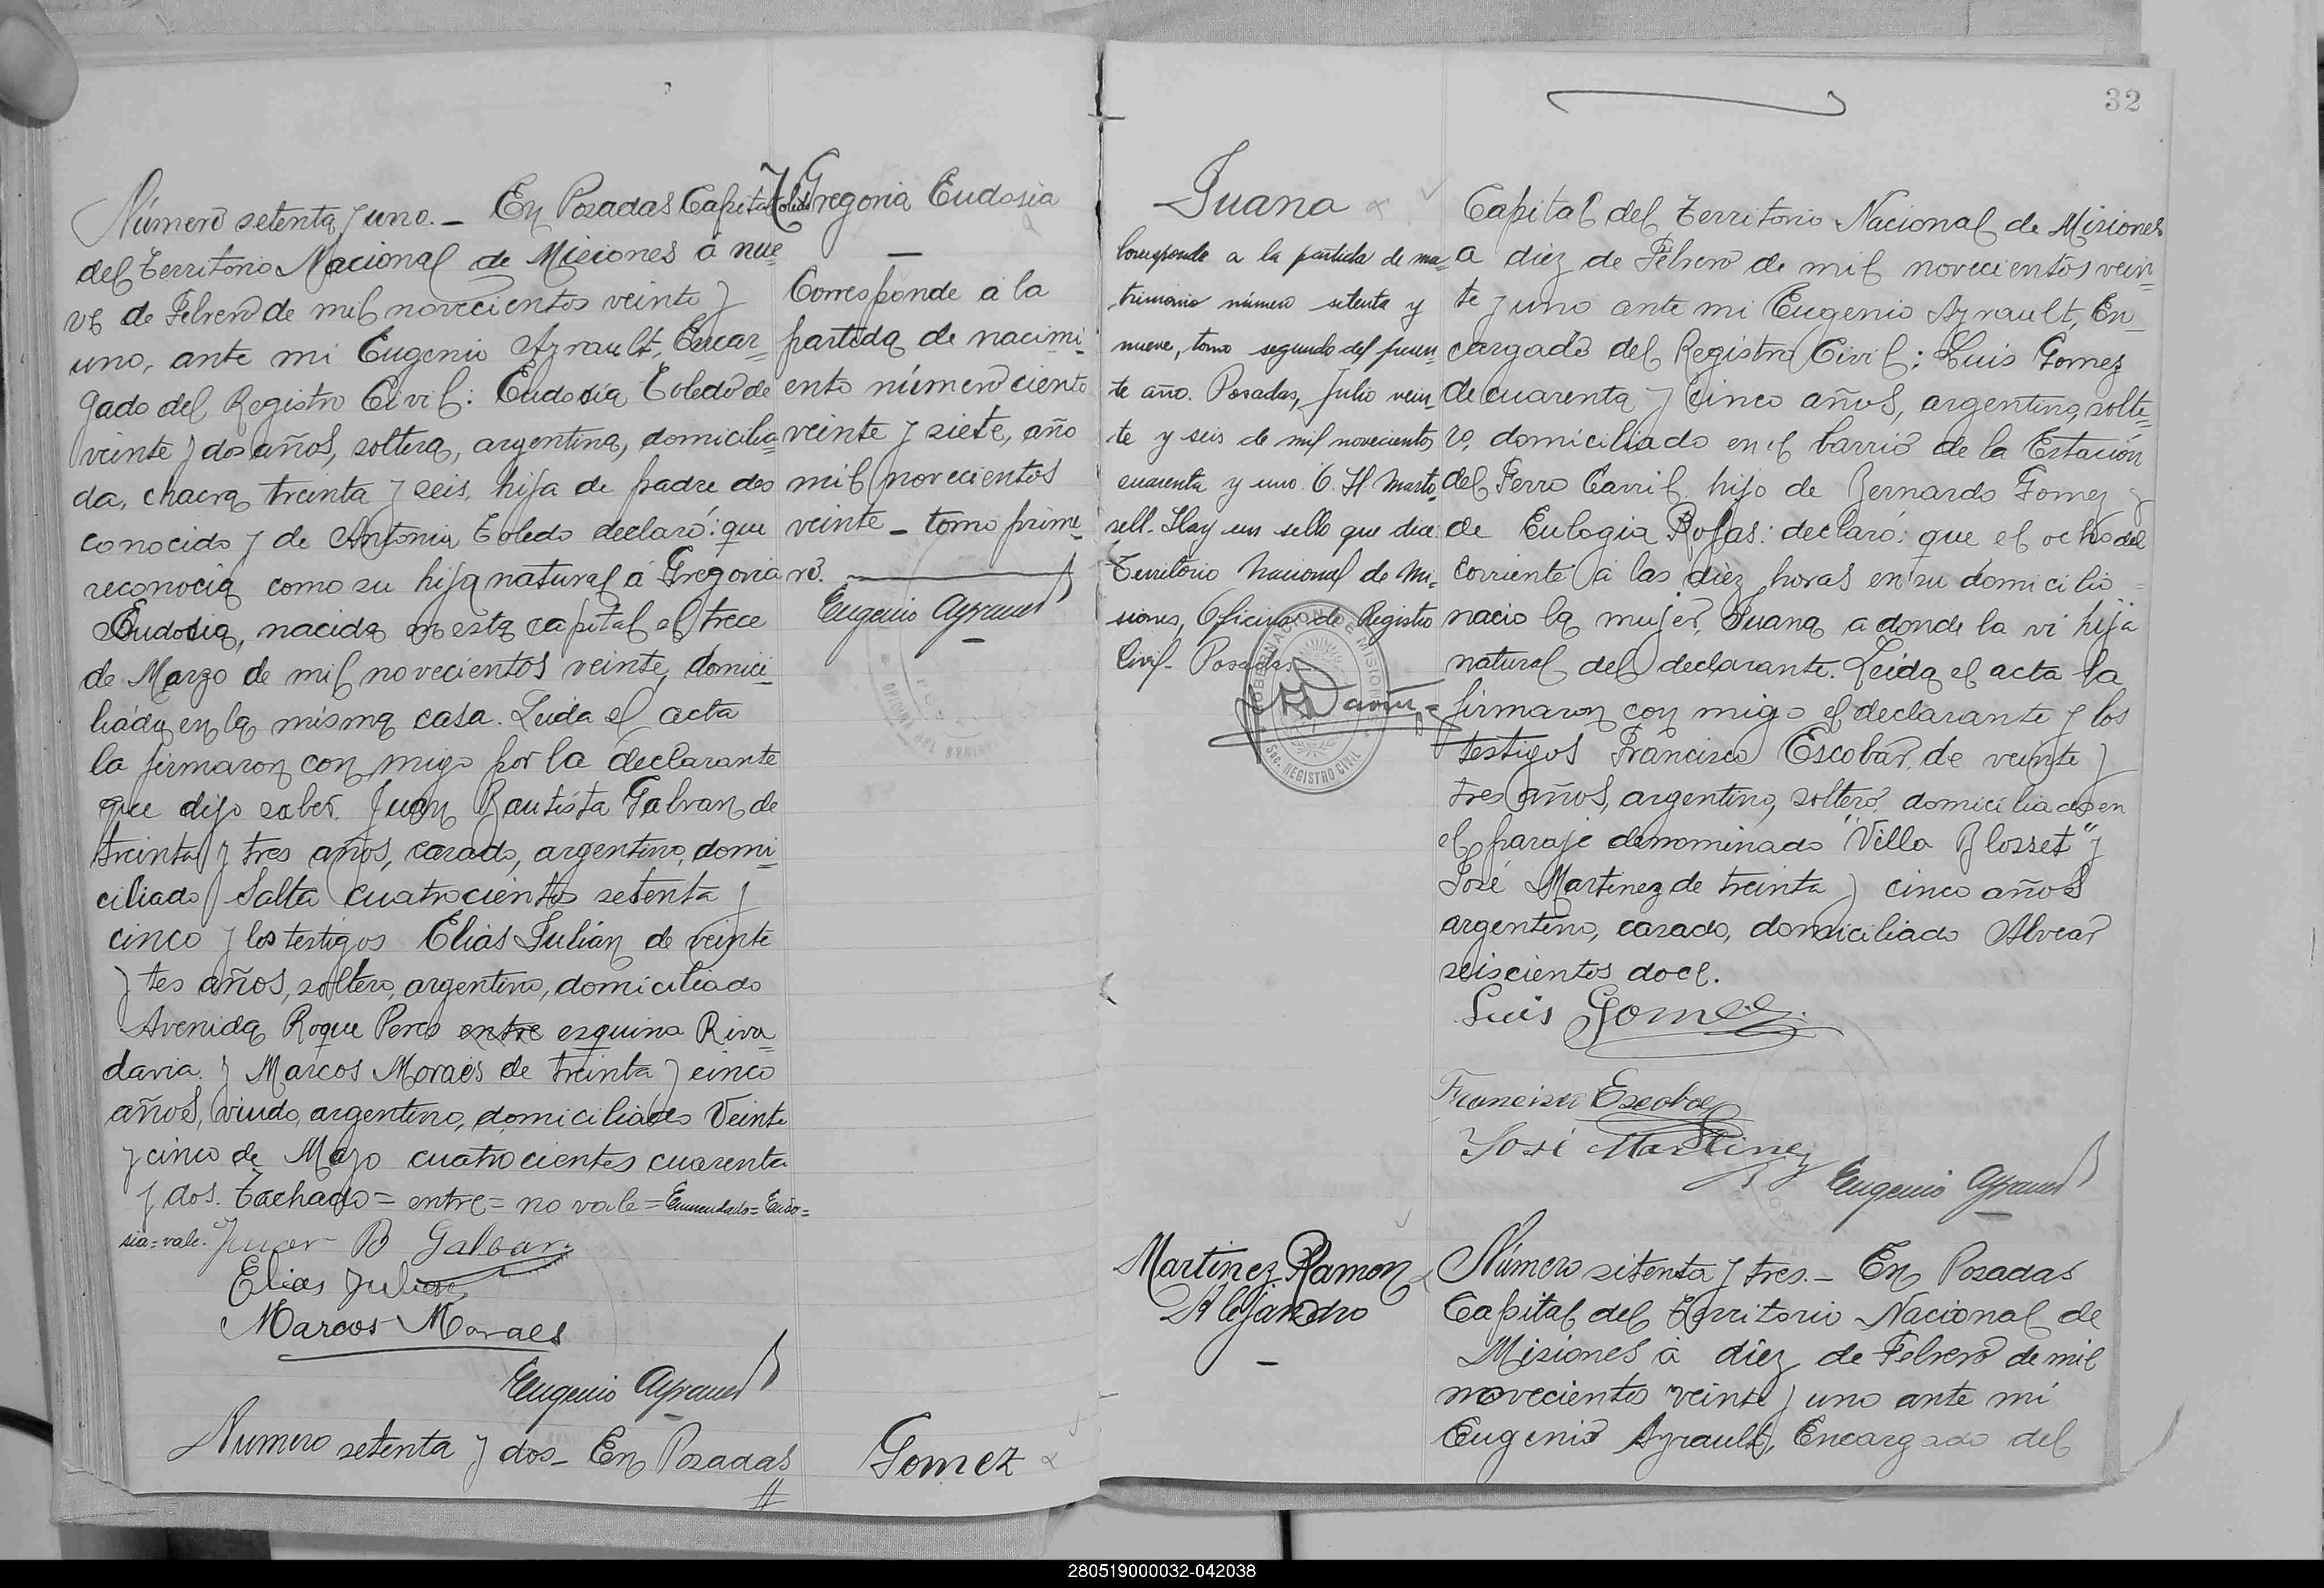 Número setenta y uno. _ En Posadas Capital
del Territorio Nacional de Misiones á nue=
ve de Febrero de mil novecientos veinte y
uno, ante mi Eugenio Ayrault, Encar=
gado del Registro Civil: Eudosia Toledo de
veinte y dos años, soltera, argentina, domicilia=
da, chacra treinta y seis, hija de padre des
conocido y de Antonia Toledo declaró: que
reconocia como su hija natural á Gregoria
Eudosia, nacida en esta capital el trece
de Marzo de mil novecientos veinte, domici=
liada en la misma casa. Leida el acta
la firmaron con migo por la declarante
que dijo saber. Juan Bautista Galvan de
treinta y tres años, casado, argentino, domi=
ciliado Salta cuatrocientos setenta y
cinco y los testigos Elias Julián de veinte
y tes años, soltero, argentino, domiciliado
Avenida Roque Peres entre esquina Riva=
davia. y Marcos Moraes de treinta y cinco
años, viudo, argentino, domiciliado Veinte
y cinco de Mayo cuatrocientos cuarenta
y dos. Tachado = entre = no vale = Enmendado = Eudo=
sia = vale.
Juan B Galvan
Elias Julian
Marcos Moraes
Eugenio Ayrault
Numero setenta y dos _ En Posadas
//
Toledo Gregoria Eudosia
Corresponde a la
partida de nacimi=
ento número ciento
veinte y siete, año
mil novecientos
veinte _ tomo prime=
ro.
Eugenio Ayrault
Gomez
32
Juana
Corresponde a la partida de ma=
trimonio número setenta y
nueve, tomo segundo del presen=
te año. Posadas, Julio vein=
te y seis de mil novecientos
cuarenta y uno. C. H. Marto=
rell. Hay un sello que dice:
Territorio Nacional de Mi=
siones, Oficina de Registro
Civil- Posadas
GOBERNACION DE MISIONES
Sec. REGISTRO CIVIL
Capital del Territorio Nacional de Misiones
a diez de Febrero de mil novecientos vein=
te y uno ante mi Eugenio Ayrault, En_
cargado del Registro Civil: Luis Gomez
de cuarenta y cinco años, argentino, solte=
ro, domiciliado en el barrio de la Estación
del Ferro Carril, hijo de Bernardo Gomez y
de Eulogia Rojas: declaró: que el ocho del
corriente á las diez horas en su domicilio =
nacio la mujer, Juana a donde la vi hija
natural del declarante. Leida el acta la
firmaron con migo el declarante y los
testigos Francisco Escobar, de veinte y
tres años, argentino, soltero, domiciliado en
el paraje denominado "Villa Blosset" y
José Martinez de treinta y cinco años
argentino, casado, domiciliado Alvear
seiscientos doce.
Luis Gomez
Francisco Escobar
José Martinez
Eugenio Ayrault
Martinez Ramon
Alejandro
Número setenta y tres. _ En Posadas
Capital del Territorio Nacional de
Misiones á diez de Febrero de mil
novecientos veinte y uno ante mi
Eugenio Ayrault, Encargado del
280519000032-042038